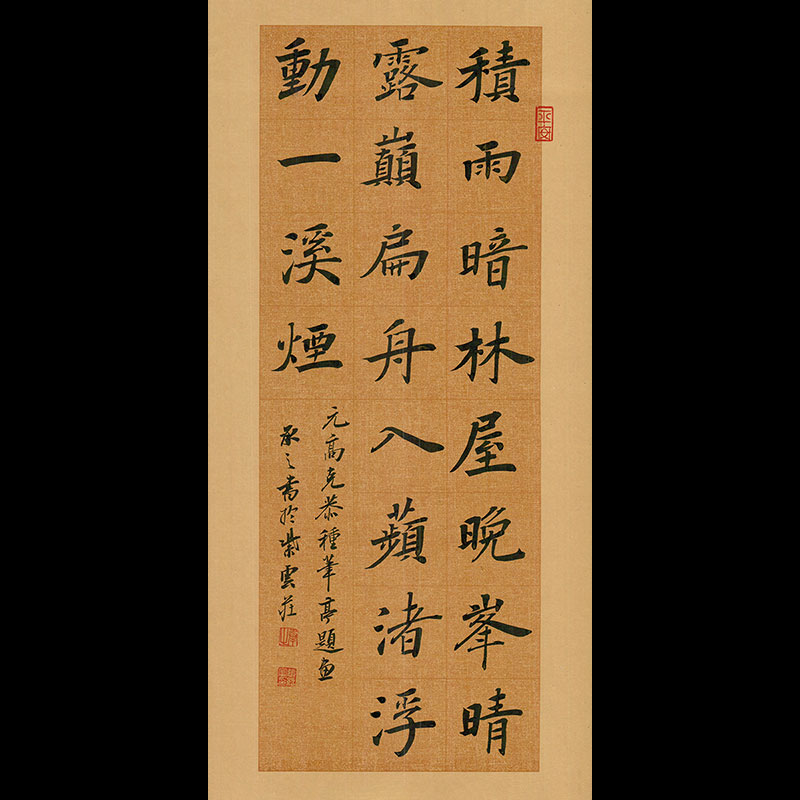 積雨暗林屋晚峯晴
露巔扁舟入蘋渚浮
動一溪煙
元高克恭種筆亭題畫
承之書於紫雲莊